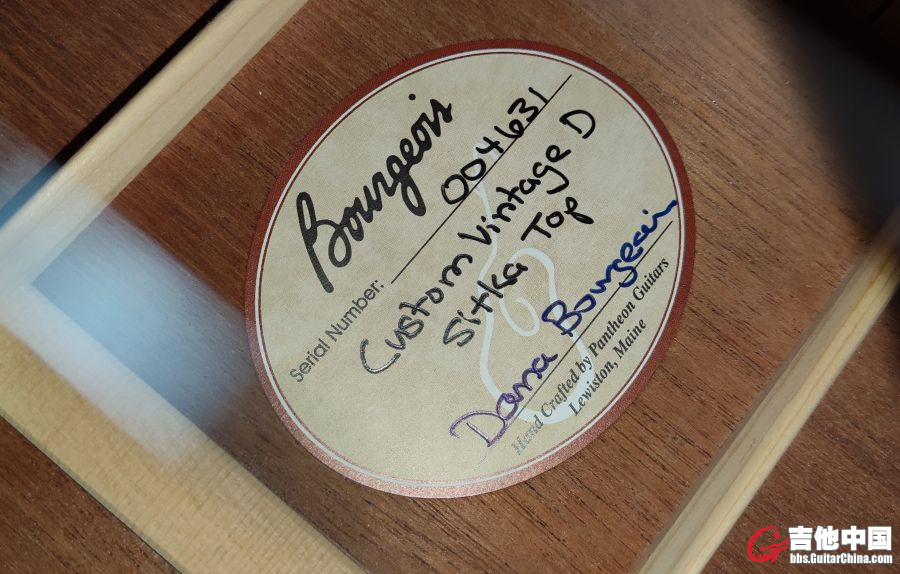 Bourgeois
Serial Number: 004631
Custom Vintage D
Sitka Top
Dana Bourgeois
Hand Crafted by Pantheon Guitars
Lewiston, Maine
吉他中国
bbs.GuitarChina.com